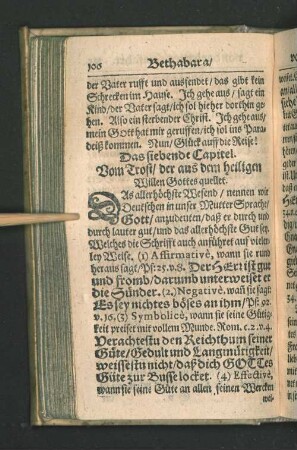 106 Bethabara/
der Vater rufft und aussendet/ das gibt kein
Schrecken im Hause. Ich gehe aus/ sagt ein
Kind/ der Vater sagt/ ich sol hieher dorthin ge-
hen. Also ein sterbender Christ. Ich gehe aus/
mein Gott hat mir geruffen/ ich sol ins Para-
deiß kommen. Nun/ Glück auff die Reise!
Das siebende Capitel.
Vom Trost/ der aus dem heiligen
Willen Gottes quellet.
DAs allerhöchste Wesend/ nennen wir
Deutschen in unser Mutter Sprache/
Gott/ anzudeuten/ daß er durch und
durch lauter gut/ und das allerhöchste Gut sey
Welches die Schrifft auch anführet auff vieler-
ley Weise. (1) Affirmativè, wann sie rund
heraus sagt/ Ps: 25. v. 8. Der HErr ist gut
und fromb/ darumb unterweiset er
die Sünder. (2.) Negativè, wañ sie sagt:
Es sey nichtes böses an ihm/ Ps: 92.
v. 16. (3) Symbolicè, wann sie seine Gütig-
keit preiset mit vollem Munde. Rom. c. 2. v. 4.
Verachtestu den Reichthum seiner
Güte/ Gedult und Langmütigkeit/
weissestu nicht/ daß dich GOTTes
Güte zur Busse locket. (4) Effectivè,
wann sie seine Güte an allen seinen Wercken